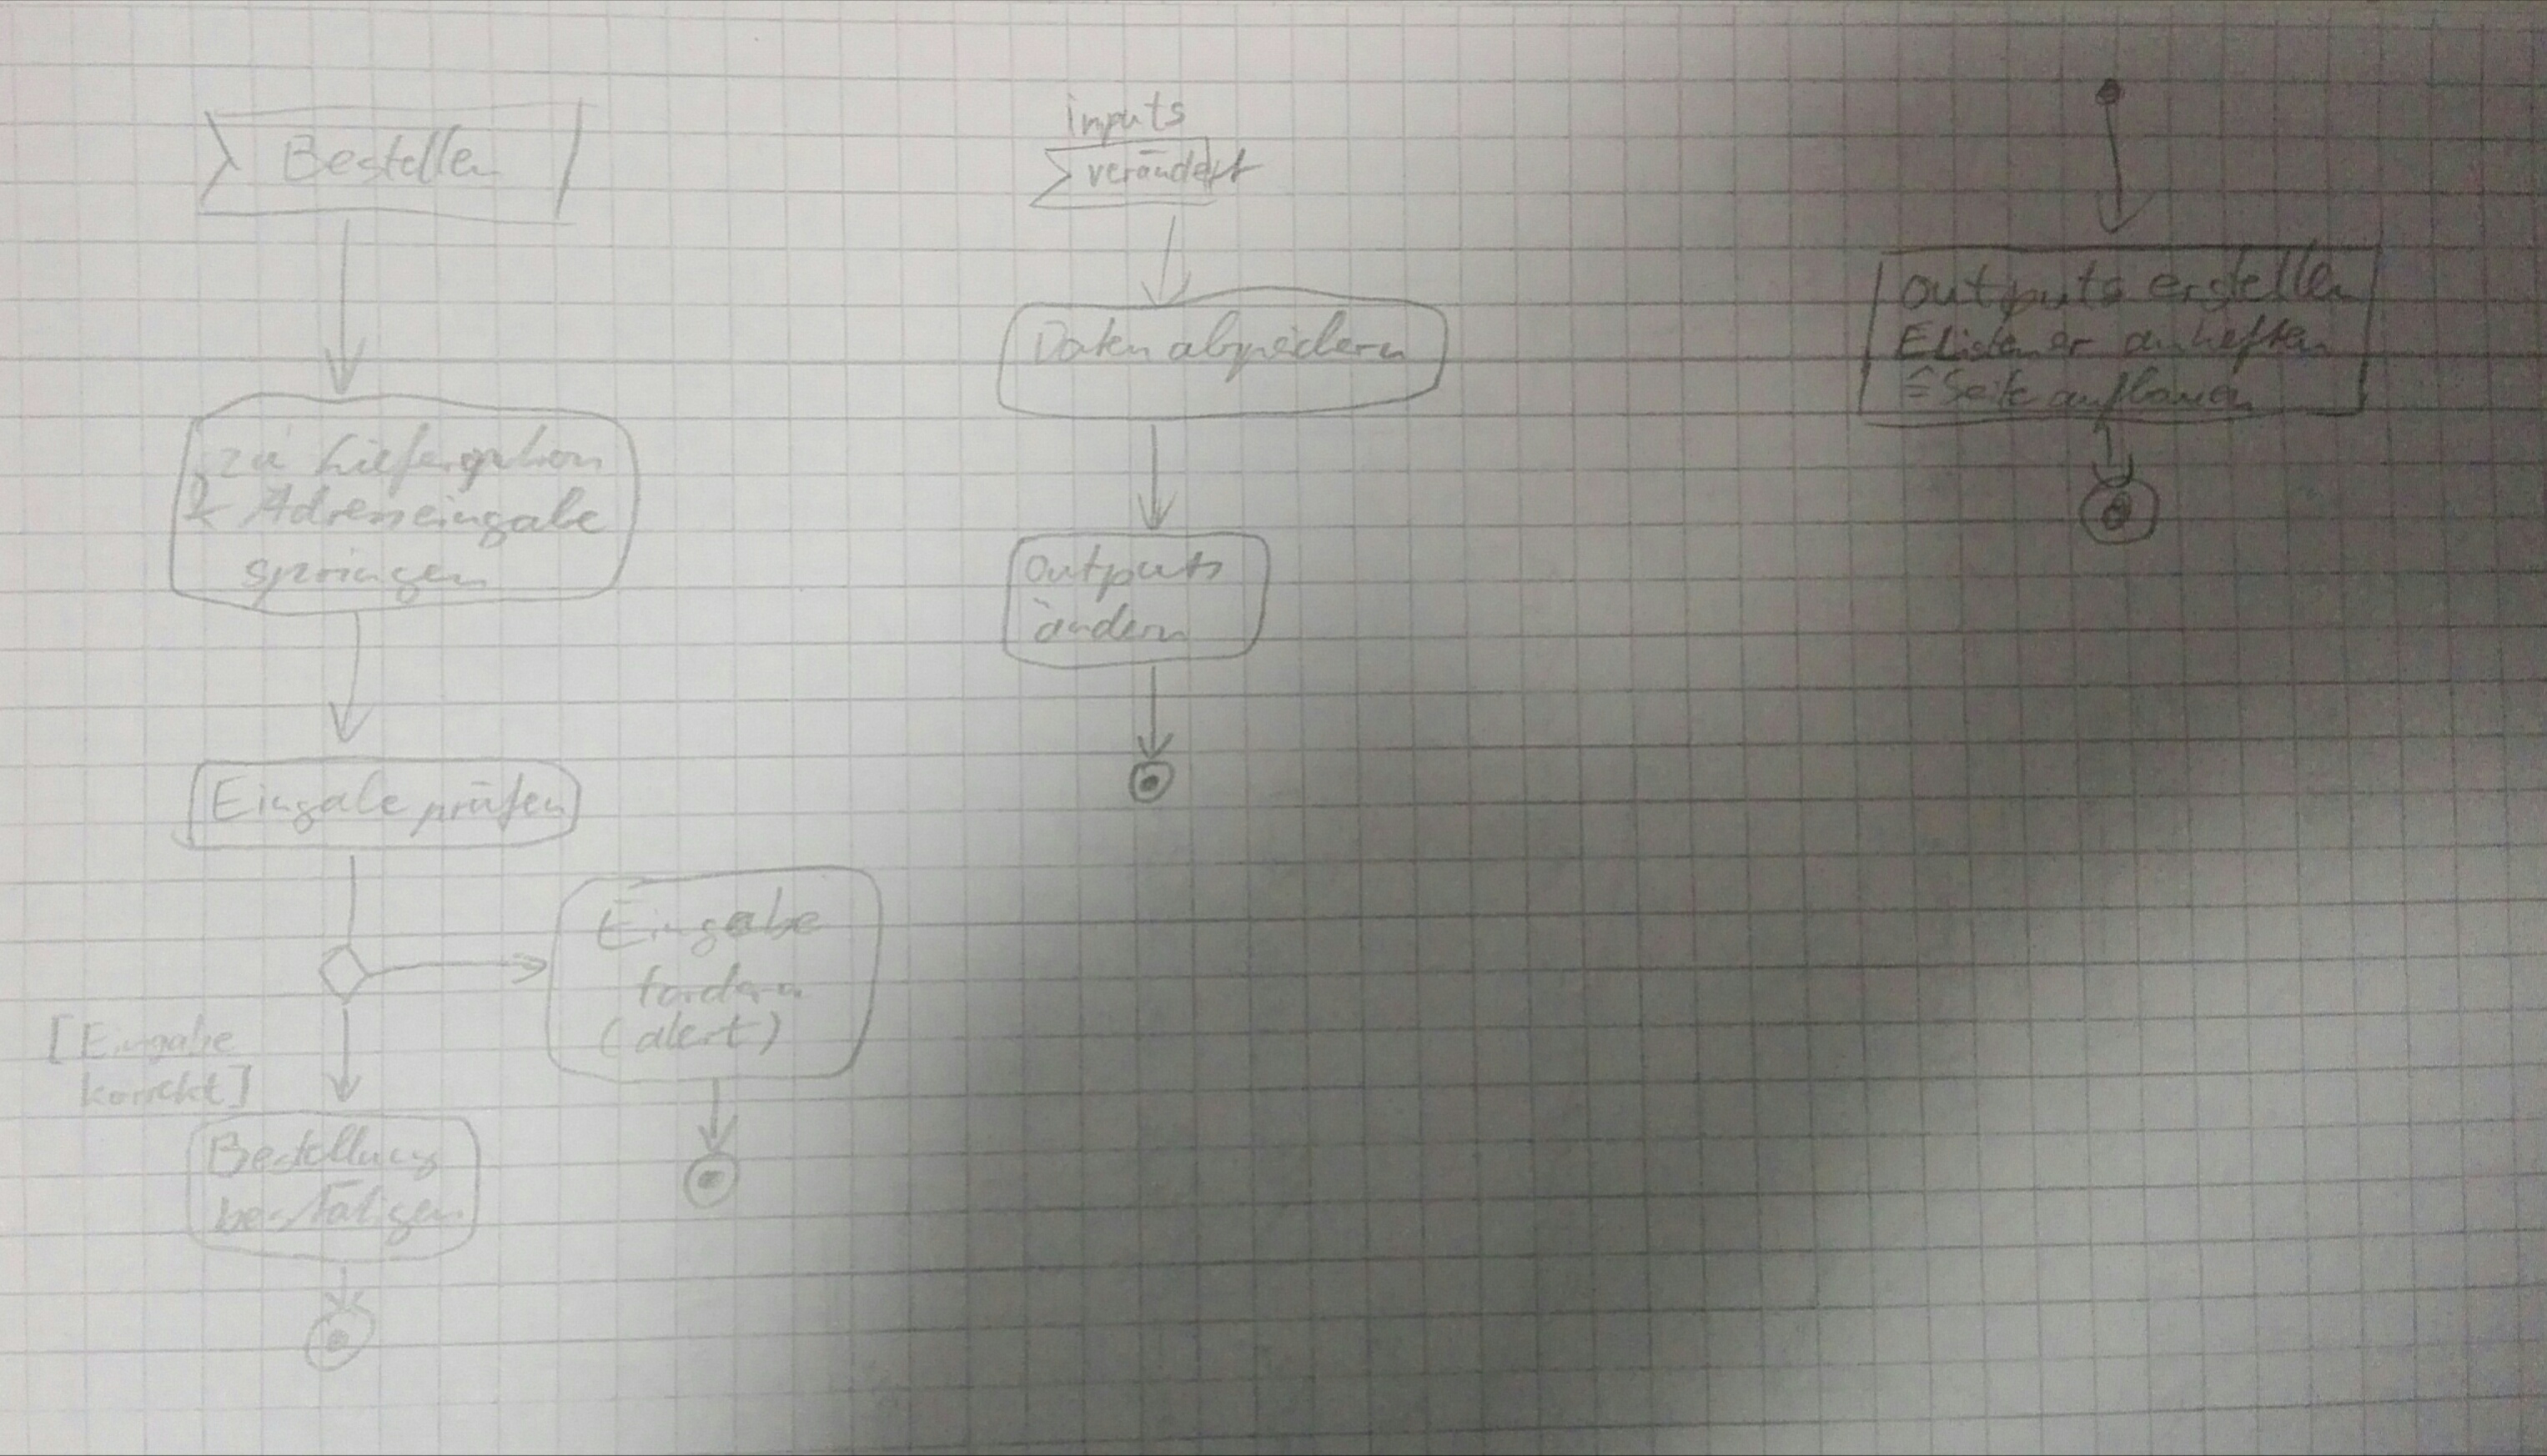 Bestellen
zu Lieferoption
& Adresseingabe
springen
Eingabe prüfen
[Eingabe
korrekt]
Eingabe
fordern
(alert)
Bestellung
bestätigen
inputs
verändert
Daten abspeichern
Outputs
ändern
outputs erstellen
EListener anheften
≙ Seite aufbauen